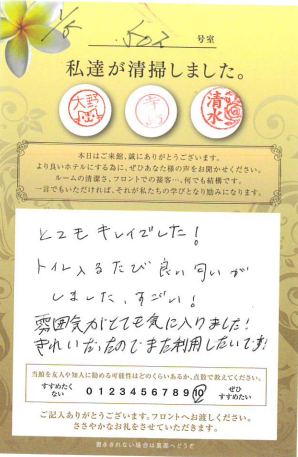 1/5
502 号室
私達が清掃しました。
大野
寺
清水
本日はご来館、誠にありがとうございます。
より良いホテルにする為に、ぜひあなた様の声をお聞かせください。
ルームの清潔さ、フロントでの接客…、何でも結構です。
一言でもいただければ、それが私たちの学びとなり励みになります。
とてもキレイでした!
トイレ入るたび良い匂いが
しました、すごい!
雰囲気がとても気に入りました!
きれいだったのでまた利用したいです!
当館を友人や知人に勧める可能性はどのくらいあるか、点数で教えてください。
すすめたくない 0 1 2 3 4 5 6 7 8 9 10 ぜひすすめたい
ご記入ありがとうございます。フロントへお渡しください。
ささやかなお礼をさせていただきます。
渡さされない場合は裏面へどうぞ